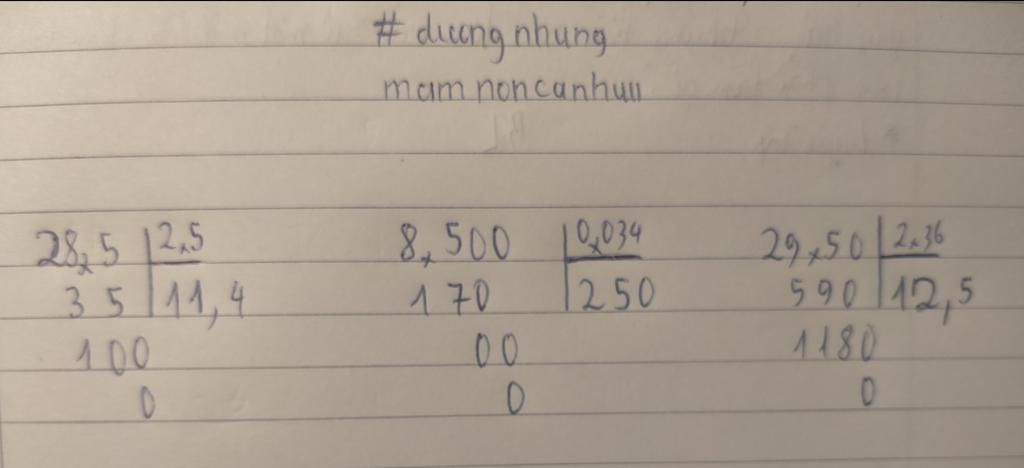 # duongnhung
mamnoncanhuu
28,5 2,5
35 11,4
100
0
8,500 0,034
170 250
00
0
29,50 2,36
590 12,5
1180
0